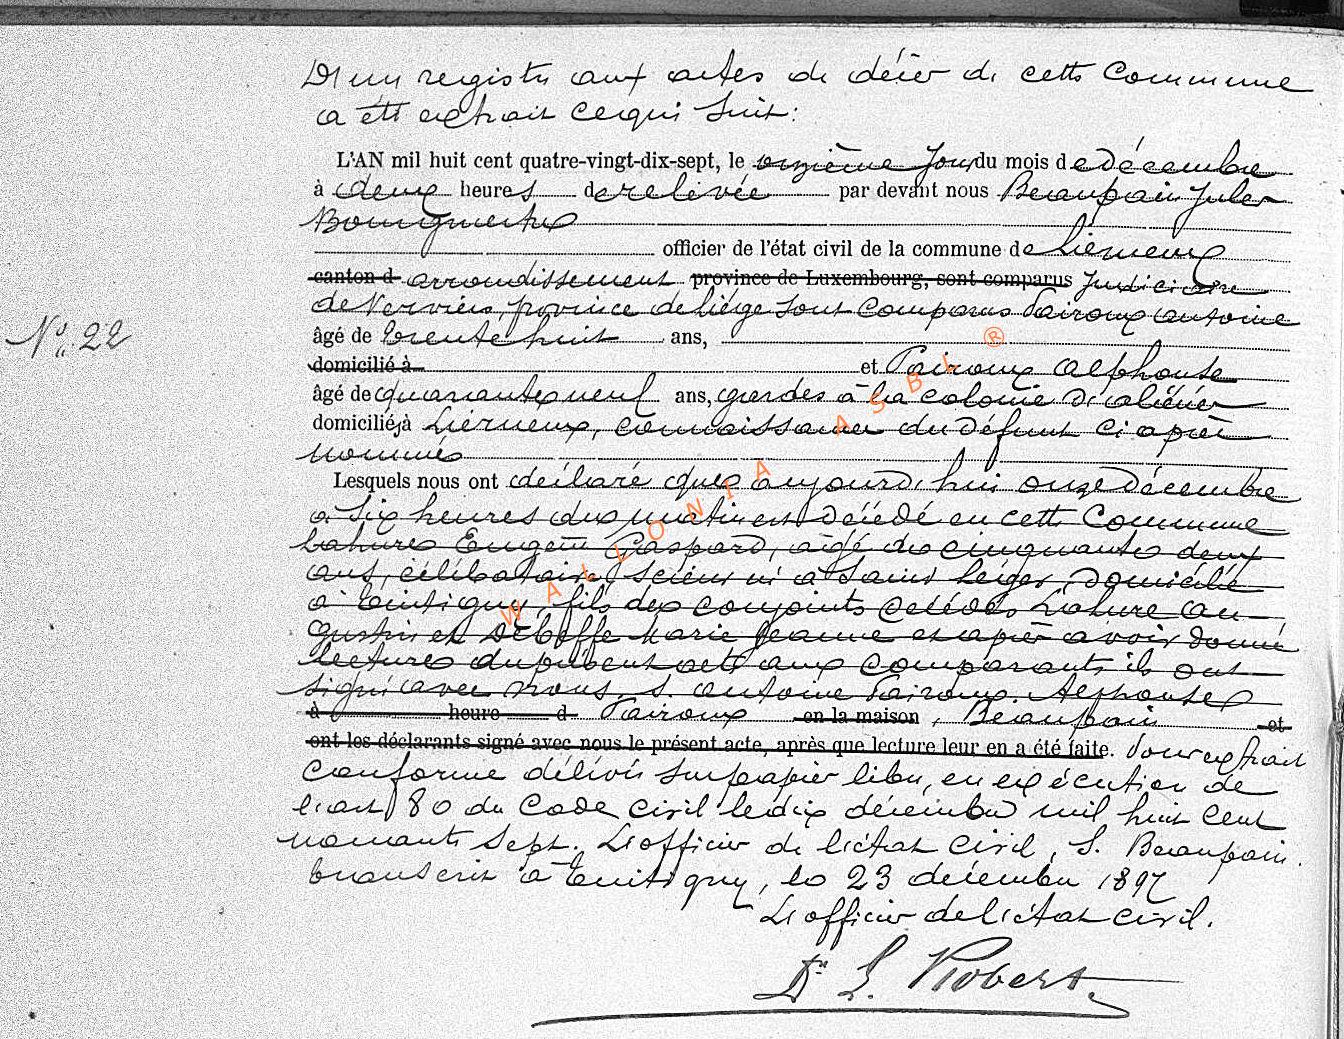 D'un registre aux actes de décès de cette Commune
a été extrait ce qui suit:
L'AN mil huit cent quatre-vingt-dix-sept, le onzième jour du mois de décembre
à deux heures de relivée par devant nous Beaupain Jules
Bourgmestre
officier de l'état civil de la commune de Lierneux
canton d arrondissement province de Luxembourg, sont comparus judiciaire
de Verviers, province de Liége sont comparus Pairoux Antoine
N° 22
âgé de trente huit ans,
domicilié à et Pairoux Alphonse
âgé de quarante neuf ans, gardes à la colonie d'aliénés
domicilié à Lierneux, connaissances du défunt ci après
nommé
Lesquels nous ont déclaré que aujourd'hui onze décembre
à six heures du matin est décédé en cette Commune
Lahure Eugène Gaspard, âgé de cinquante deux
ans, célibataire, scieur né à Saint Léger, domicilié
à Tintigny, fils des conjoints décédés Lahure Au-
gustin et Marie Jeanne et après avoir donné
lecture du présent acte aux comparants ils ont
signé avec nous. s. Antoine Pairoux. Alphonse
à heure d Pairoux en la maison, Beaupain et
ont les déclarants signé avec nous le présent acte, après que lecture leur en a été faite. Pour extrait
conforme délivré sur papier libre, en exécution de
l'art 80 du Code civil le dix décembre mil huit cent
nonante sept. L'officier de l'état civil, s. Beaupain.
Transcrit à Tintigny, le 23 décembre 1897
L'officier de l'état civil.
Dr L. Robert
WALLONIA ASBL ®